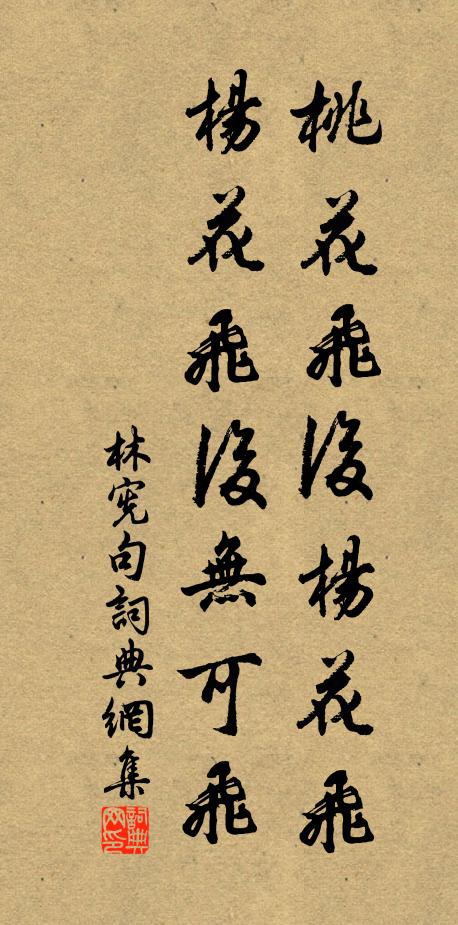 桃花飛後楊花飛
楊花飛後無可飛
林憲句詞典網集
詞典網印